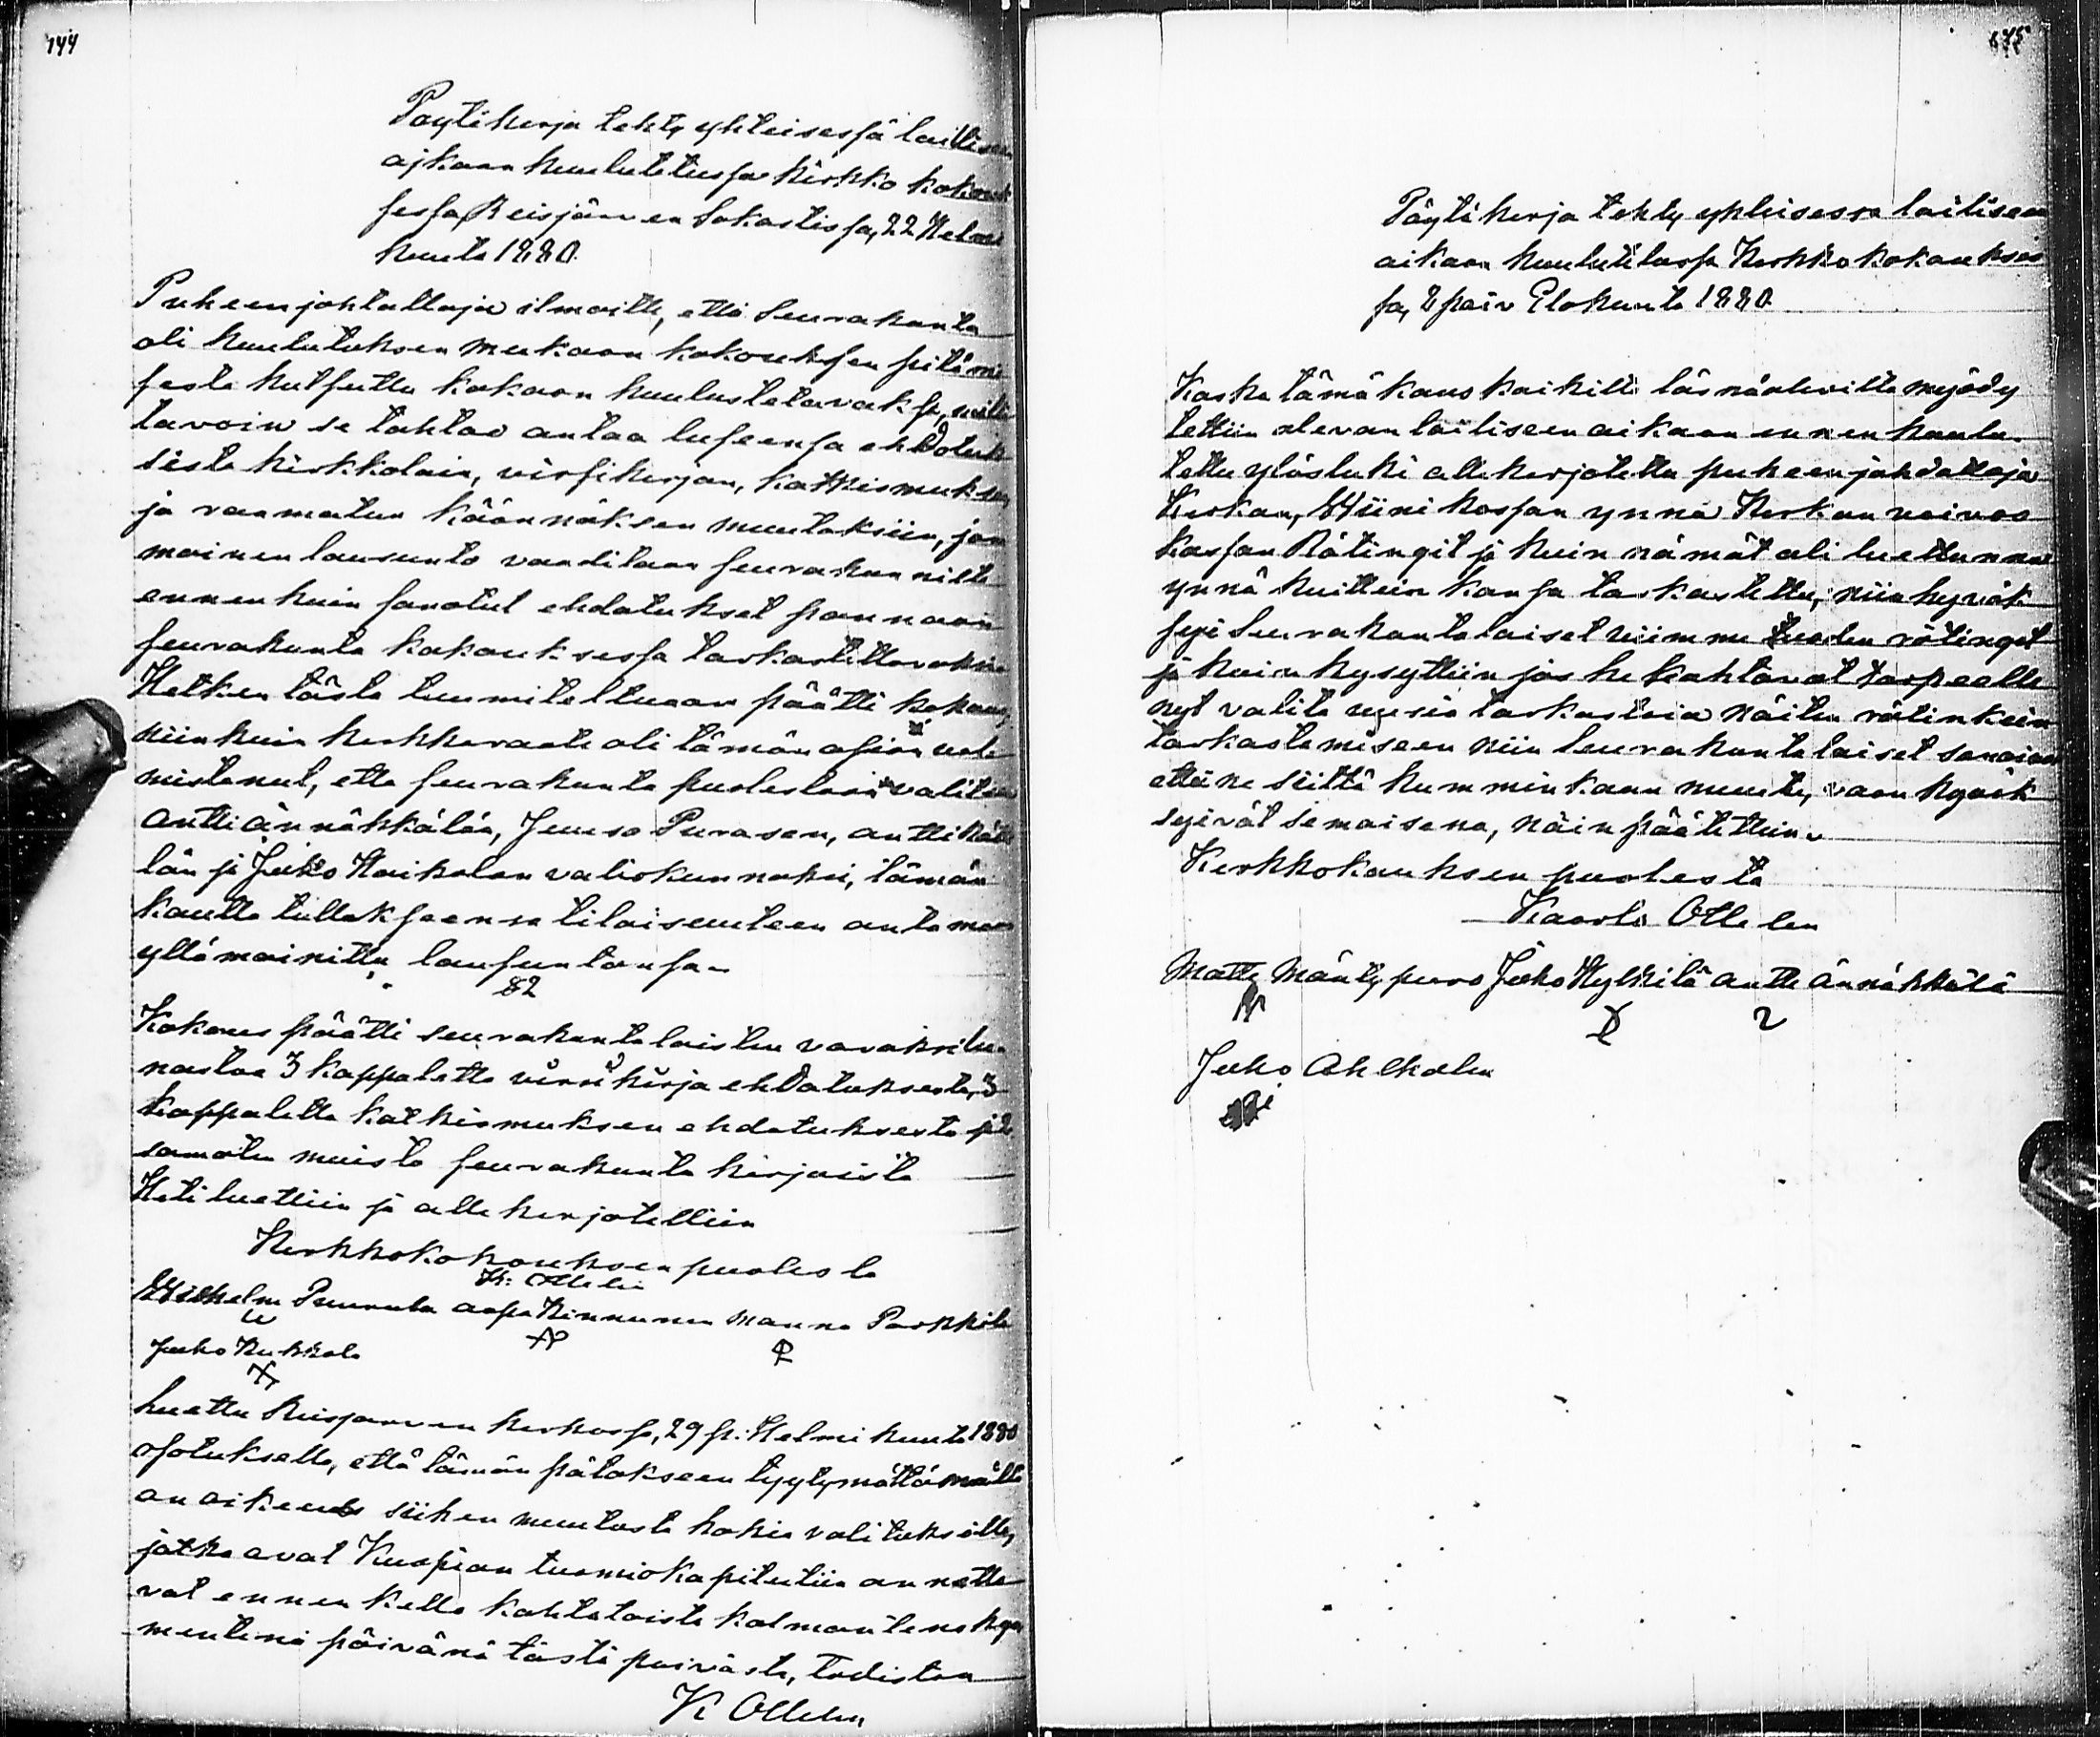 144
Poytäkirja tehty yhteisessä lailliseen
ajkaan kuulutetussa kirkko kokouk
sessa, Reisjärven Sakastissa, 22 Helmi
kuuta 1880.
Puheenjohtattaja ilmoitti, että Seurakunta
oli kuulutuksen mukaan kokouksen pitämi
sestä kutsuttu kokoon kuulustetavaksi, millä
tavoin se tahtoo antaa luseensa ehdotuk
sista kirkkolain, virsikirjan, katkismuksen
ja raamatun käännöksen muutoksiin, jom
moinen lausunto vaaditaan seurakunnilta
ennenkuin sanotut ehdotukset pannaan
seurakunta kokouksessa tarkastettavaksi
Hetken tästä tuumiteltuaan päätti kokous,
niinkuin kirkkoraati oli tämän asian val
mistanut, että seurakunta puolestaan valitsee
antti ännäkkälän, Juuso Purasen, antti
län ja Juho Haikolan valiokunnaksi, tämän
kautta tullaksensa tilaisuuteen antamaan
yllämainittu lausuntonsa.
§2
Kokous päätti seurakuntalaisten varaksi lu-
nastaa 3 kappaletta virsikirja ehdotuksesta, 3
kappaletta katkismuksen ehdotuksesta ja
samoten muista seurakunta kirjoista
Heti luettiin ja alle kirjotettiin
Kirkkokokouksen puolesta
K: Ollelin
Wilhelm Puurula aapa Kinnunen Manna Parkkila
Juho Kukkola
Luettu Reisjärven kirkossa, 29 p: Helmi kuuta 1880
osotuksella, että tämän pätökseen tyytymättömällä
on oikeus siihen muutosta hakia valituksilla,
jotka ovat Kuopion tuomiokapituliin annetta
vat ennen kello kahtatoista kolmantenakym
mentenä päivänä tästä päivästä, Todistaa
K Ollelin
145
Pöytäkirja tehty yhteisessä lailiseen
aikaan kuulutetussa Kirkkokokoukses
sa, 8 päiv Elokuuta 1880
Koska tämä kaus kaikilta läsnäolevilta myödy
tettiin olevan lailiseen aikaan ennen kuulu-
tettu ylösluki allekirjotettu puheenjohdattaja
Kirkon, Wiini kassan ynnä Kirkon vaivas
kassan Rätingit ja kuin nämät oli luettunna
ynnä kuittein kanssa tarkastettu, niin hyväk
syi Seurakuntalaiset viimme vuoden rätingit
ja kuin kysyttiin jos he kahtovat tarpeelle
nyt valita uusia tarkastaia näiten rätinkein
tarkastamiseen niin Seurakuntalaiset sanoivat
ettei ne siittä kumminkaan muutu, vaan hyväk
syivät semaisena, näin päätettiin.
Kirkkokauksen puolesta
Kaarlo Ollelin
Matti Mäntypuro Juho Hylkilä antti ännäkkälä
Juho Ahlholm